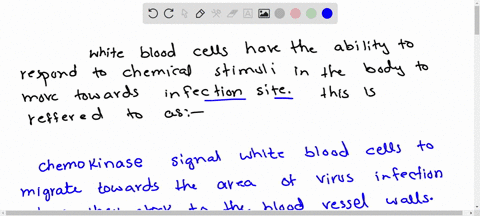 white blood cells have the ability to
respond to chemical stimuli in the body to
move towards infection site. This is
reffered to as:-
Chemokinase signal white blood cells to
migrate towards the area of virus infection
to the blood vessel walls.